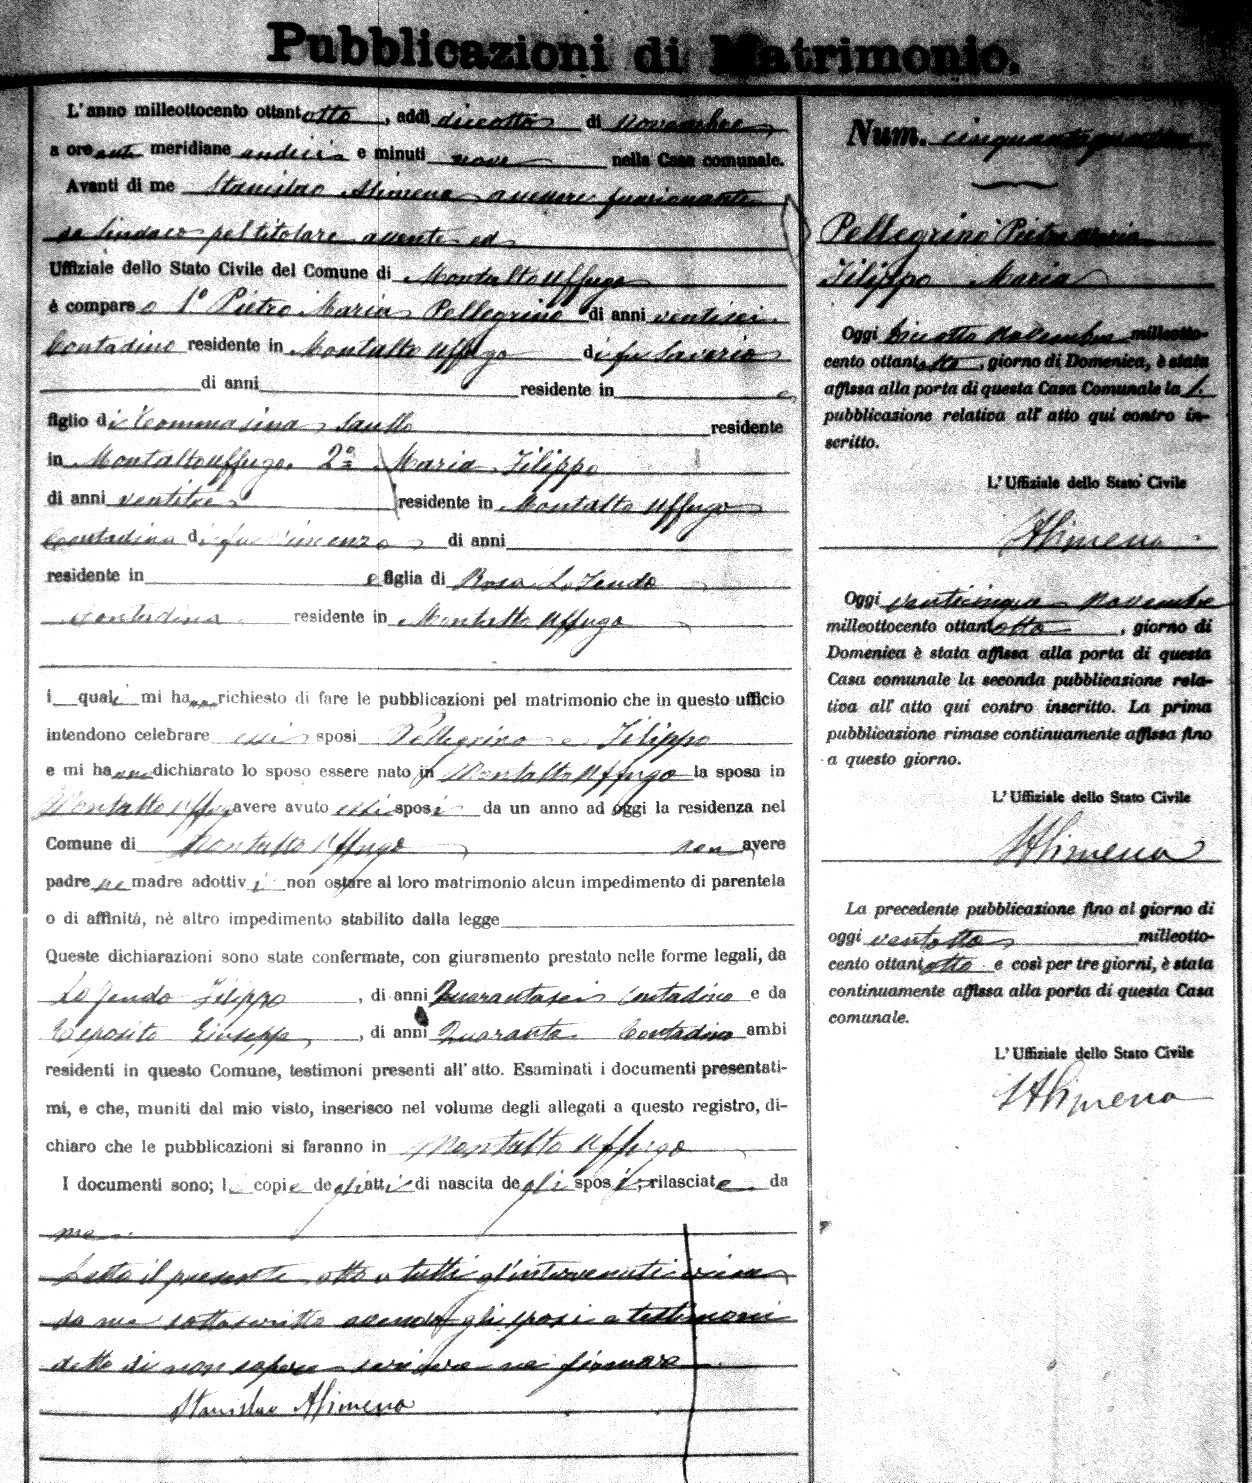 Pubblicazioni di Matrimonio.
L'anno milleottocento ottantotto, addì diciotto di Novembre
a ore anti meridiane undici e minuti nove nella Casa comunale.
Avanti di me Stanislao Alimena assessore funzionante
da Sindaco pel titolare assente ed
Uffiziale dello Stato Civile del Comune di Montalto Uffugo
è comparso 1° Pietro Maria Pellegrino di anni ventisei
Contadino residente in Montalto Uffugo di fu Saverio
di anni residente in e
figlio di Tommasina Saullo residente
in Montalto Uffugo. 2° Maria Filippo
di anni ventitre residente in Montalto Uffugo
Contadina di fu Vincenzo di anni
residente in e figlia di Rosa Lo Feudo
contadina residente in Montalto Uffugo
i quali mi hanno richiesto di fare le pubblicazioni pel matrimonio che in questo ufficio
intendono celebrare essi sposi Pellegrino e Filippo
e mi hanno dichiarato lo sposo essere nato in Montalto Uffugo la sposa in
Montalto Uffugo avere avuto essi sposi da un anno ad oggi la residenza nel
Comune di Montalto Uffugo non avere
padre ne madre adottivi non ostare al loro matrimonio alcun impedimento di parentela
o di affinità, nè altro impedimento stabilito dalla legge
Queste dichiarazioni sono state confermate, con giuramento prestato nelle forme legali, da
Lo Feudo Filippo, di anni Quarantasei Contadino e da
Esposito Giuseppe, di anni Quaranta Contadino ambi
residenti in questo Comune, testimoni presenti all'atto. Esaminati i documenti presentati-
mi, e che, muniti dal mio visto, inserisco nel volume degli allegati a questo registro, di-
chiaro che le pubblicazioni si faranno in Montalto Uffugo
I documenti sono; le copie degli atti di nascita degli sposi, rilasciate da
me.
Letto il presente atto a tutti gl'intervenuti viene
da me sottoscritto avendo gli sposi e testimoni
detto di non sapere scrivere ne firmare
Stanislao Alimena
Num. cinquantaquattro
Pellegrino Pietro Maria
Filippo Maria
Oggi diciotto Novembre milleotto-
cento ottantotto, giorno di Domenica, è stata
affissa alla porta di questa Casa Comunale la 1.
pubblicazione relativa all' atto qui contro in-
scritto.
L' Uffiziale dello Stato Civile
S Alimena
Oggi venticinque Novembre
milleottocento ottantotto, giorno di
Domenica è stata affissa alla porta di questa
Casa comunale la seconda pubblicazione rela-
tiva all' atto qui contro inscritto. La prima
pubblicazione rimase continuamente affissa fino
a questo giorno.
L' Uffiziale dello Stato Civile
S Alimena
La precedente pubblicazione fino al giorno di
oggi ventotto milleotto-
cento ottantotto e così per tre giorni, è stata
continuamente affissa alla porta di questa Casa
comunale.
L' Uffiziale dello Stato Civile
S Alimena